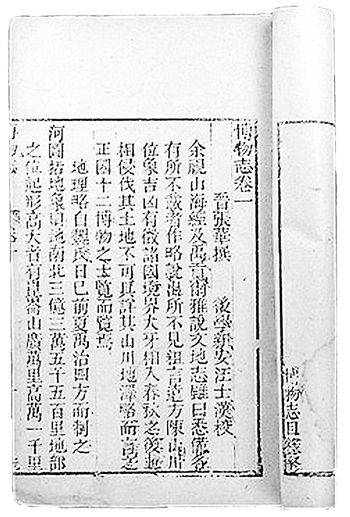 博物志卷一
晉張華撰 後學新安汪士漢校
余視山海經及禹貢爾雅說文地志雖曰悉備各
有所不載者作略說出所不見粗言遠方陳山川
位象吉凶有徵諸國境界犬牙相入春秋之後並
相侵伐其土地不可具詳其山川地澤略而言之
正國十二博物之士覽而鑒焉
地理略自魏氏曰已前夏禹治四方而制之
河圖括地象曰地南北三億三萬五千五百里地部
之位起形高大者有崑崙山廣萬里高萬一千里
博物志
博物志目錄終